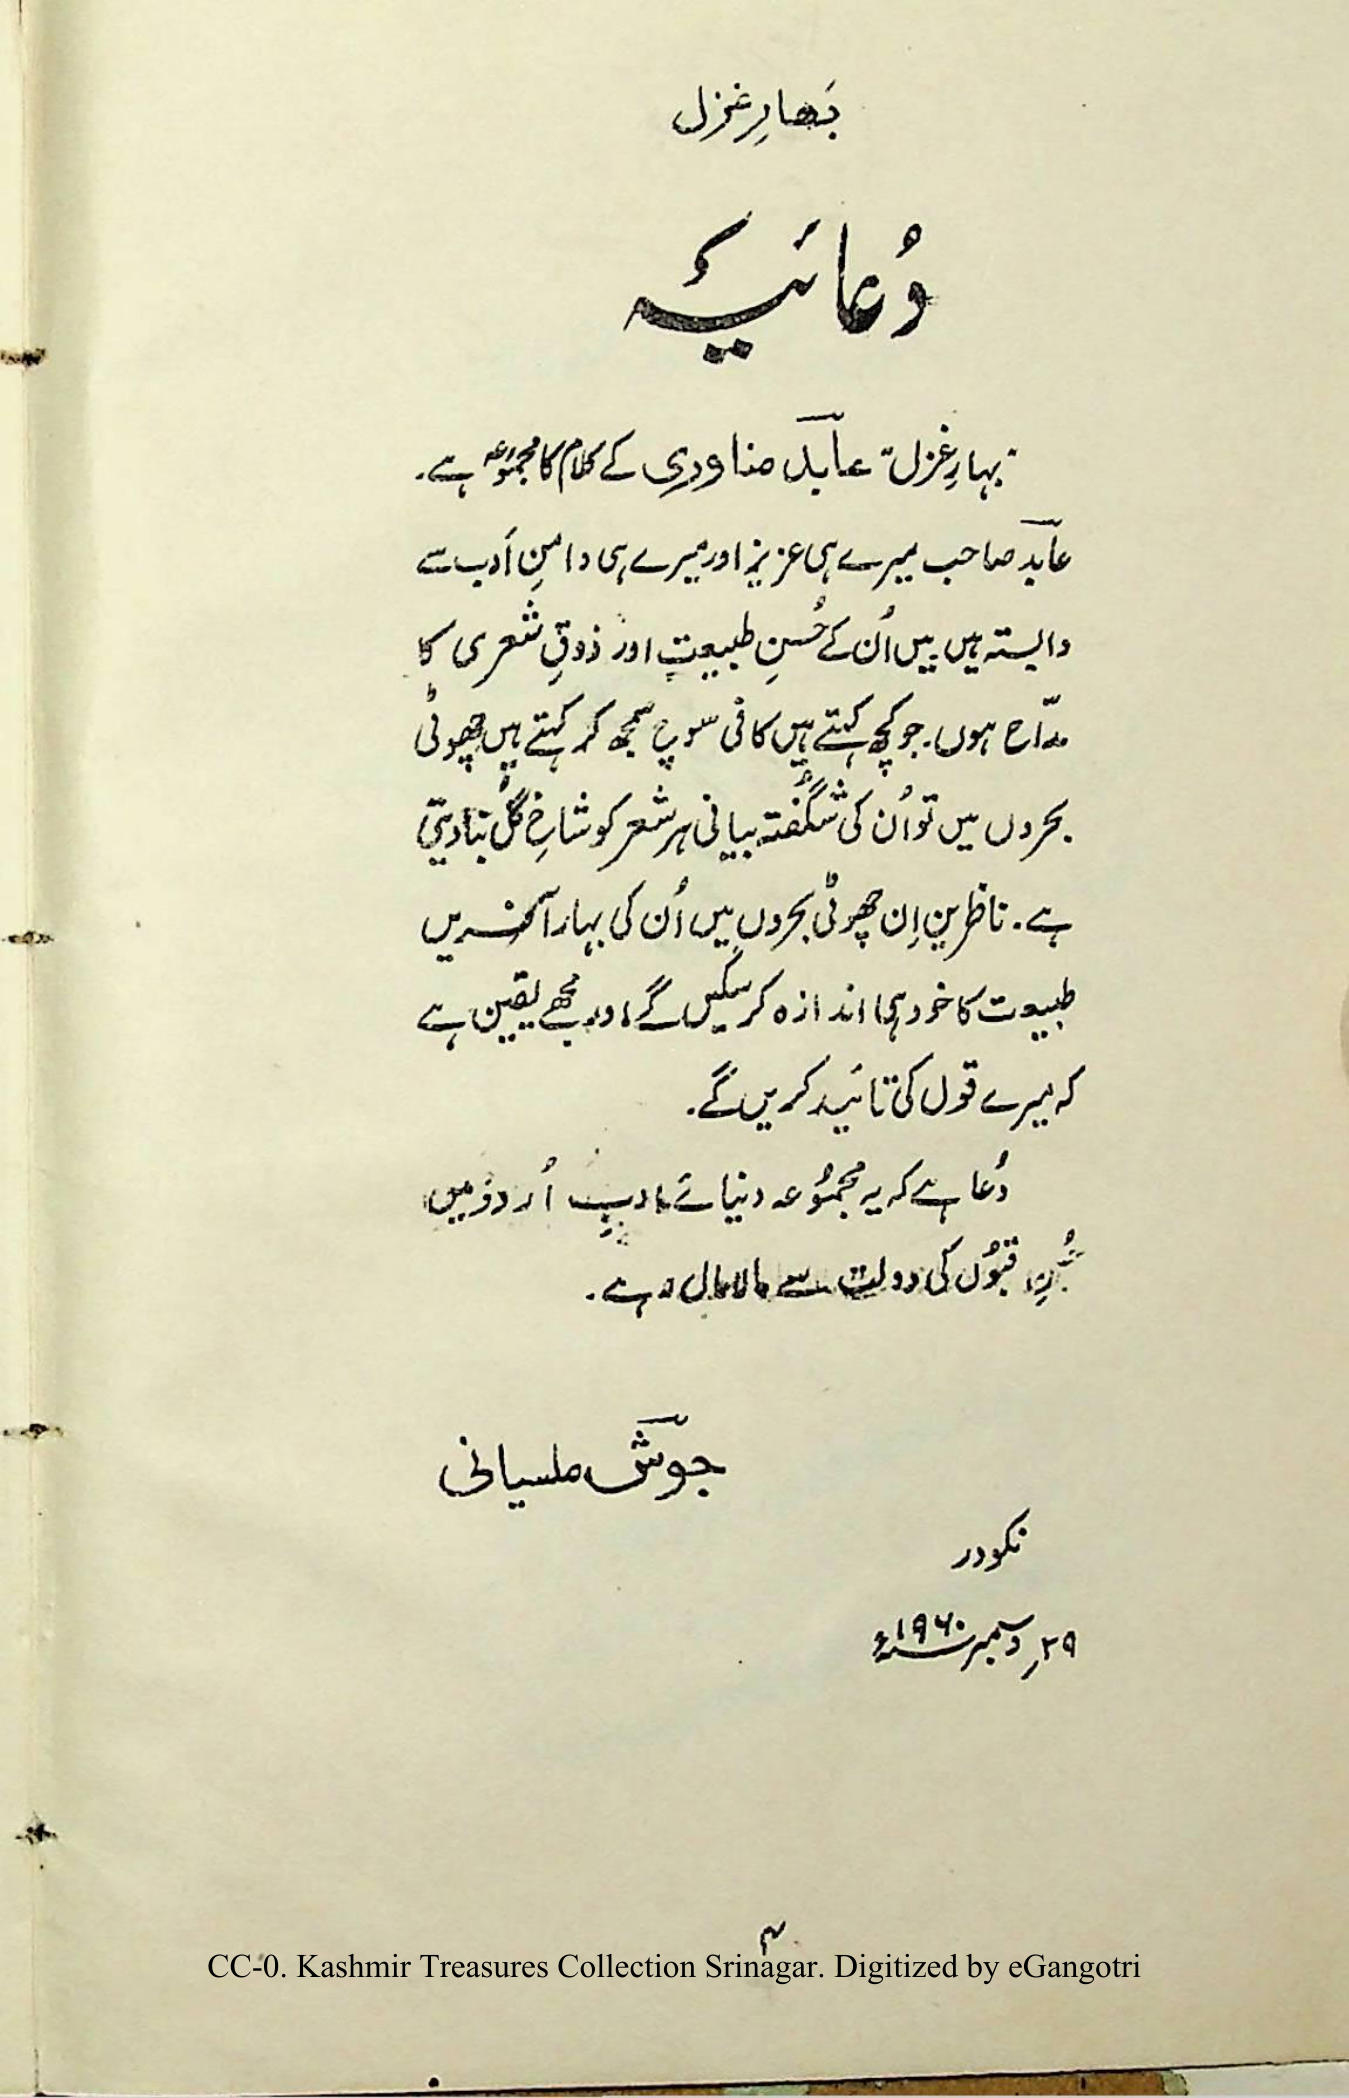 بَھارِ غزل
دُعائیہ
"بہارِ غزل" عابدؔ مناوری کے کلام کا مجموُعہ ہے۔
عابدؔ صاحب میرے ہی عزیز اور میرے ہی دامنِ اَدب سے
وابستہ ہیں۔ میں اُن کے حُسنِ طبیعت اور ذوقِ شعری کا
مدّاح ہوں۔ جو کچھ کہتے ہیں کافی سوچ سمجھ کر کہتے ہیں چھوٹی
بحروں میں تو اُن کی شگُفتہ بیانی ہر شعر کو شاخِ گُل بنا دیتی
ہے۔ ناظرین اِن چھوٹی بحروں میں اُن کی بہار آفریں
طبیعت کا خود ہی اندازہ کر سکیں گے، اور مجھے یقین ہے
کہ میرے قول کی تائید کریں گے۔
دُعا ہے کہ یہ مجموُعہ دنیائے ادبِ اُردوُ میں
قبوُل کی دولت سے مالامال رہے۔
جوشؔ ملسیانی
نکودر
۲۹؍ دسمبر ۱۹۶۰ء
۴
CC-0. Kashmir Treasures Collection Srinagar. Digitized by eGangotri